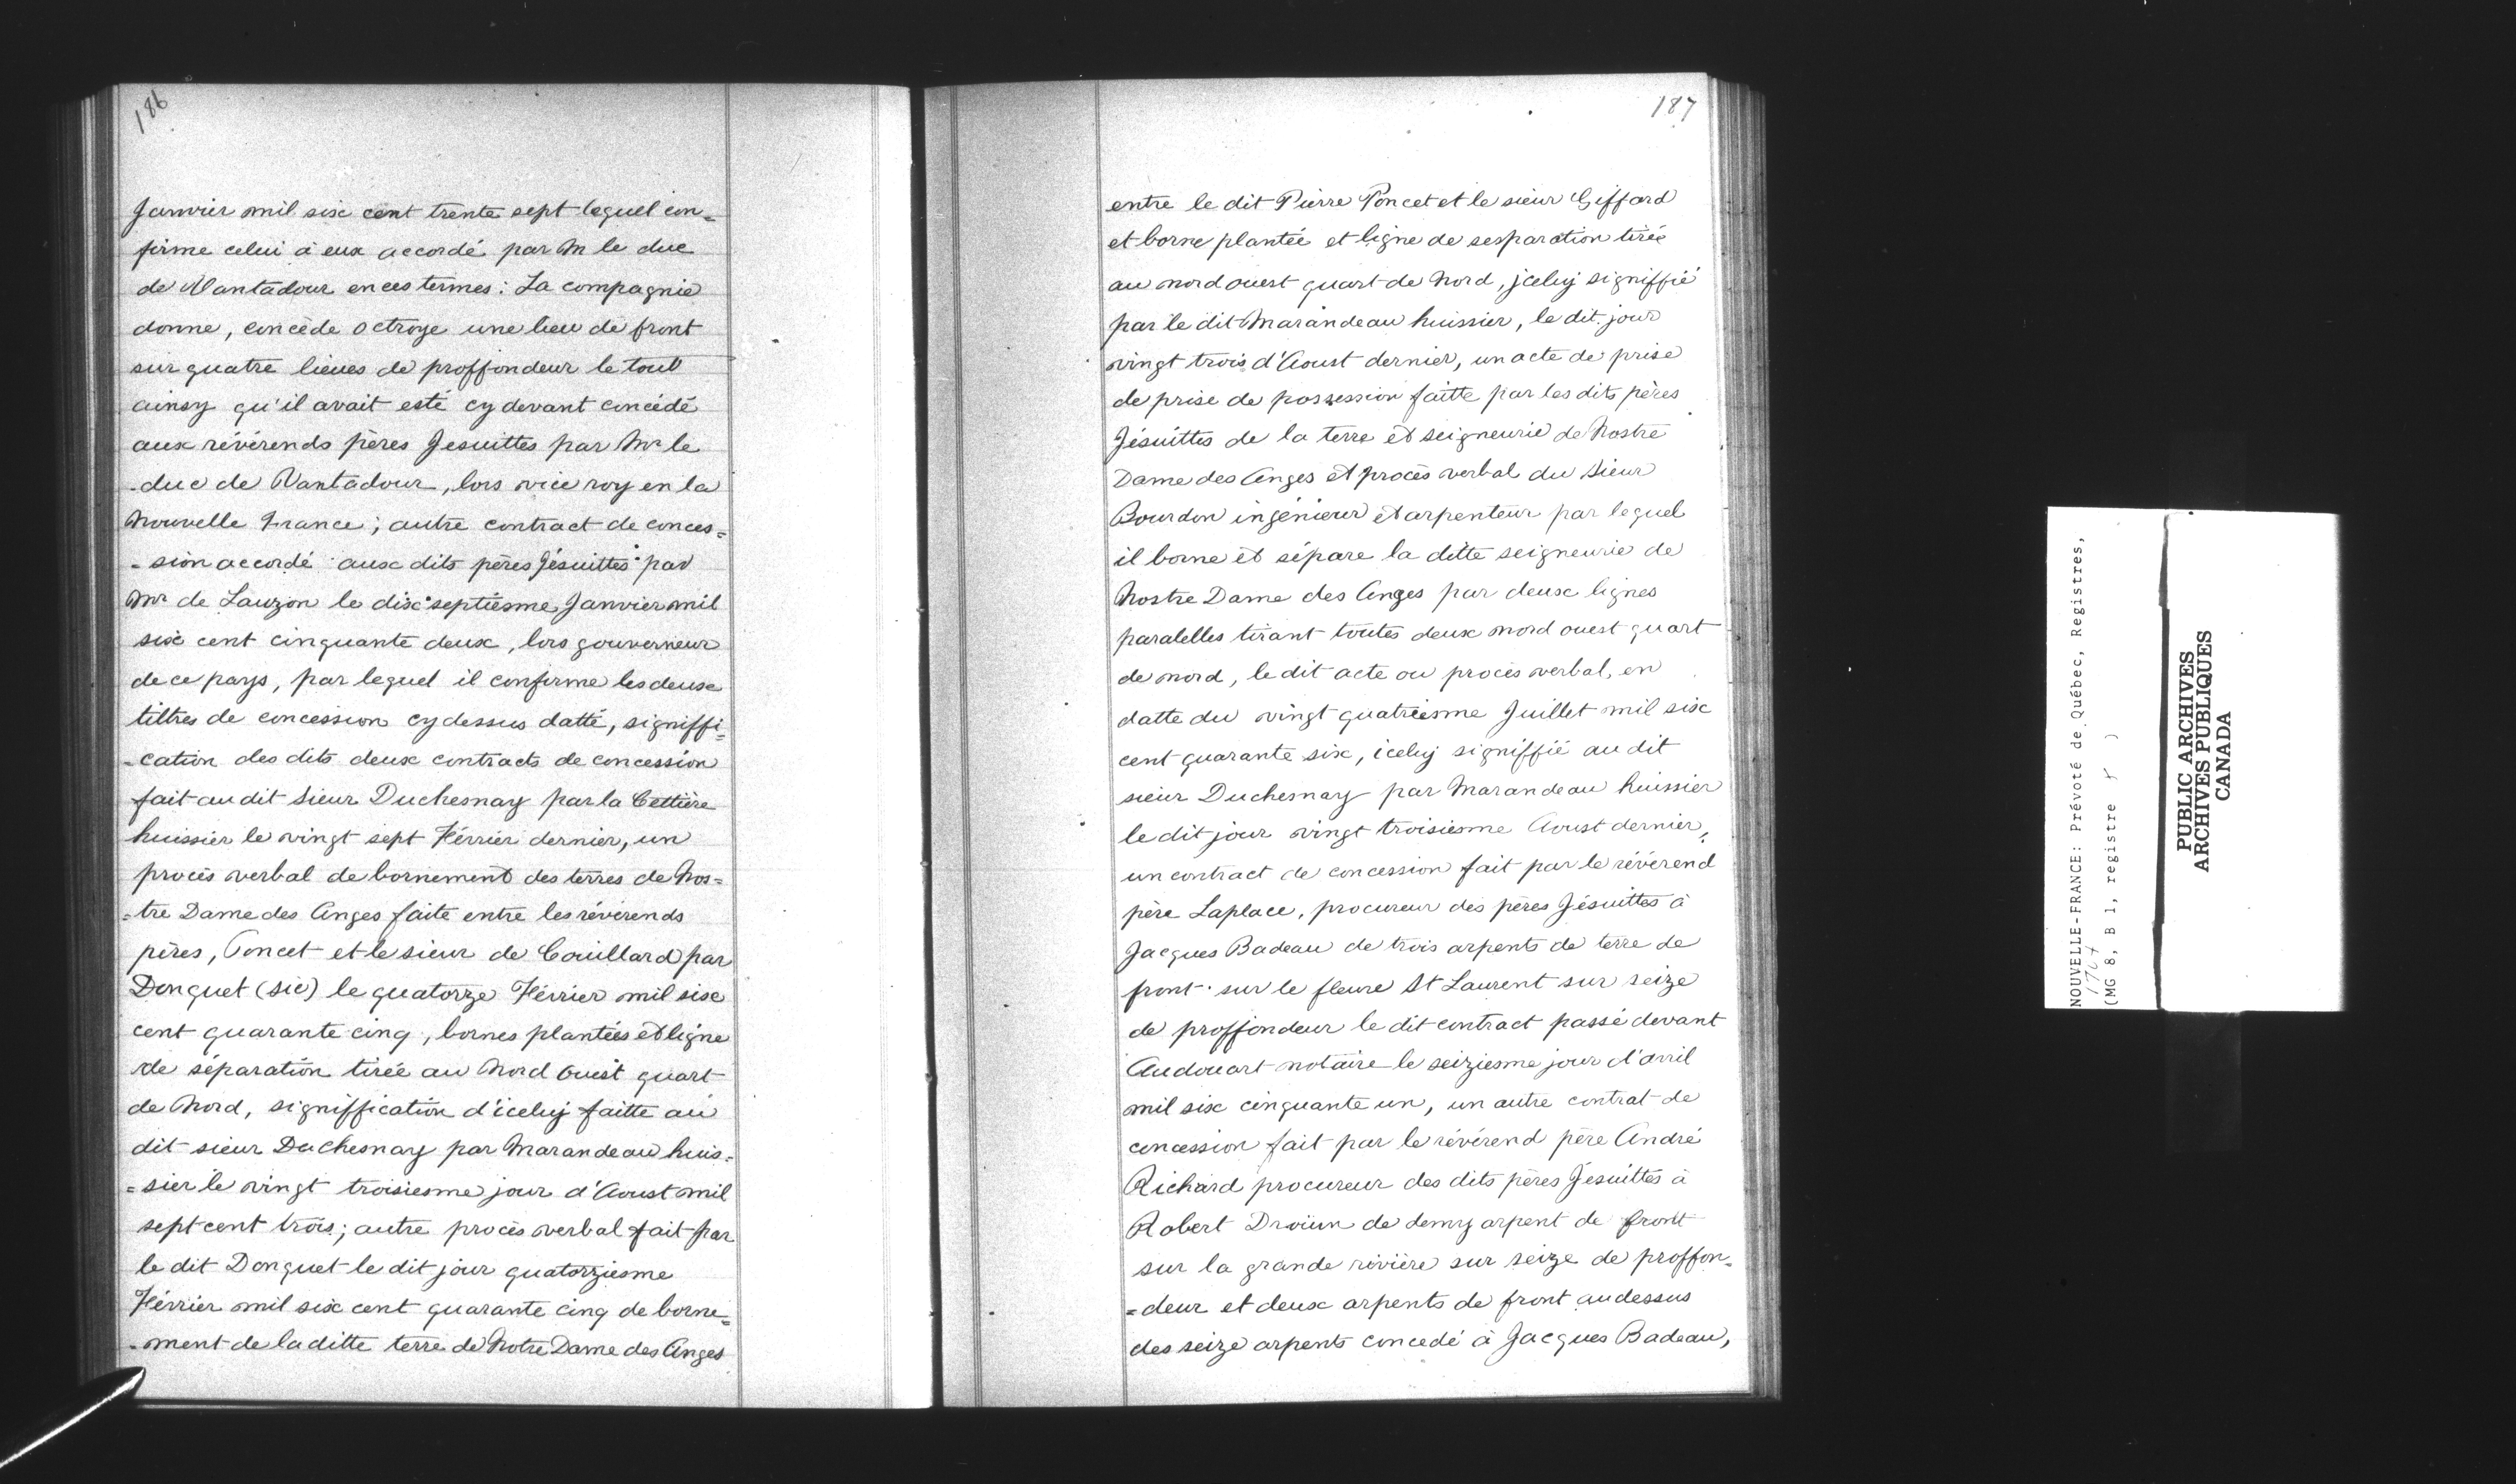 186
Janvier mil six cent trente sept lequel con=
firme celui à eux accordé par M le duc
de Vantadour en ces termes : La compagnie
donne, concède octroye une lieu de front
sur quatre lieues de proffondeur le tout
ainsy qu'il avait esté cy devant concédé
aux révérends pères Jesuittes par Mr le
duc de Vantadour, lors vice roy en la
Nouvelle France ; autre contract de conces=
=sion accordé aux dits pères Jésuittes par
Mr de Lauzon le dix septiesme Janvier mil
six cent cinquante deux, lors gouverneur
de ce pays, par lequel il confirme les deux
tiltres de concession cy dessus datté, signiffi=
=cation des dits deux contracts de concession
fait au dit sieur Duchesnay par la Cettière
huissier le vingt sept Février dernier, un
procès verbal de bornement des terres de Nos=
=tre Dame des Anges faite entre les révérends
pères, Poncet et le sieur de Couillard par
Donguet (sic) le quatorze Février mil six
cent quarante cinq, bornes plantées et ligne
de séparation tirée au Nord Ouest quart
de Nord, signiffication d'iceluy faitte au
dit sieur Duchesnay par Marandeau huis=
=sier le vingt troisiesme jour d'Aoust mil
sept cent trois ; autre procès verbal fait par
le dit Donguet le dit jour quatorziesme
Février mil six cent quarante cinq de borne=
=ment de la ditte terre de Notre Dame des Anges
187
entre le dit Pierre Poncet et le sieur Giffard
et borne plantée et ligne de sesparation tirée
au nord ouest quart de Nord, jceluy signiffié
par le dit Marandeau huissier, le dit jour
vingt trois d'Aoust dernier, un acte de prise
de prise de possession faitte par les dits pères
Jésuittes de la terre et seigneurie de Nostre
Dame des Anges et procès verbal du Sieur
Bourdon ingénieur et arpenteur par lequel
il borne et sépare la ditte seigneurie de
Nostre Dame des Anges par deux lignes
paralelles tirant toutes deux nord ouest quart
de nord, le dit acte ou procès verbal, en
datte du vingt quatriesme Juillet mil six
cent quarante six, iceluy signiffié au dit
sieur Duchesnay par Marandeau huissier
le dit jour vingt troisiesme Aoust dernier,
un contract de concession fait par le révérend
père Laplace, procureur des pères Jésuittes à
Jacques Badeau de trois arpents de terre de
front sur le fleuve St Laurent sur seize
de proffondeur le dit contract passé devant
Audouart notaire le seiziesme jour d'avril
mil six cinquante un, un autre contrat de
concession fait par le révérend père André
Richard procureur des dits pères Jesuittes à
Robert Droüin de demy arpent de front
sur la grande rivière sur seize de proffon=
=deur et deux arpents de front au dessus
des seize arpents concedé à Jacques Badeau,
NOUVELLE-FRANCE: Prévoté de Québec, Registres,
1707
(MG 8, B 1, registre )
PUBLIC ARCHIVES
ARCHIVES PUBLIQUES
CANADA